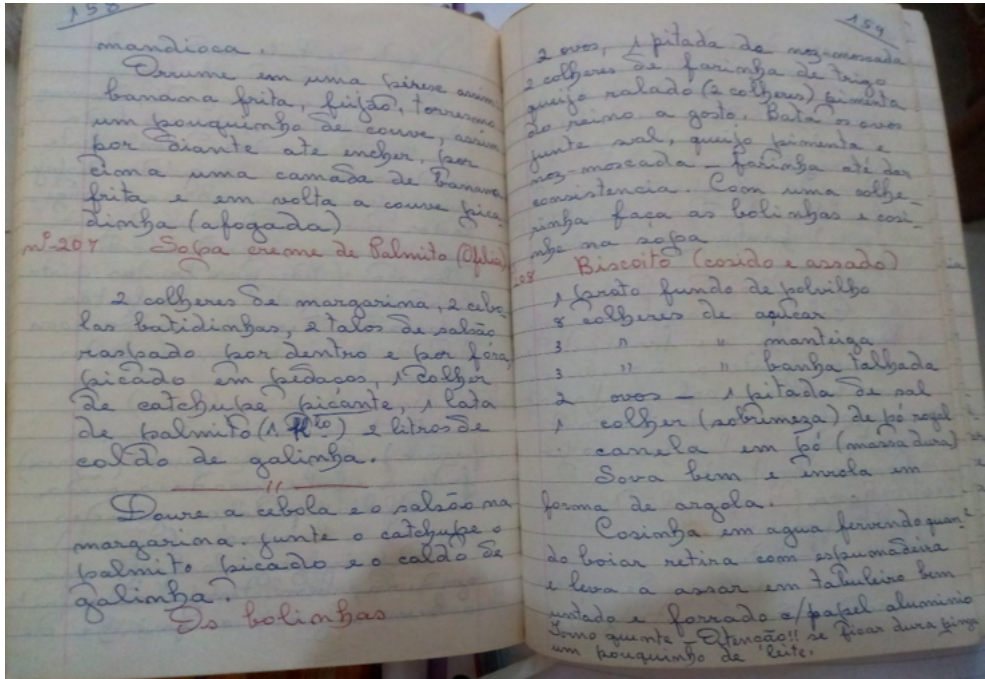 158
mandioca.
Arrume em uma pirese assim
banana frita, feijão, torresmo
um pouquinho de couve, assim
por diante ate encher, por
cima uma camada de banana
frita e em volta a couve pica
dinha (afogada)
nº-207 Sopa creme de Palmito (Ofelia)
2 colheres de margarina, 2 cebo
las batidinhas, 2 talos de salsão
raspado por dentro e por fóra,
picado em pedaços, 1 colher
de catchupe picante, 1 lata
de palmito (1 ) 2 litros de
caldo de galinha.
Doure a cebola e o salsão na
margarina. junte o catchupe o
palmito picado e o caldo de
galinha.
Os bolinhas
159
2 ovos, 1 pitada de noz-moscada
2 colheres de farinha de trigo
queijo ralado (2 colheres) pimenta
do reino a gosto. Bata os ovos
junte sal, queijo pimenta e
noz-moscada - farinha até dar
consistencia. Com uma colhe-
rinha faça as bolinhas e cosi-
nhe na sopa
208 Biscoito (cosido e assado)
1 prato fundo de polvilho
8 colheres de açúcar
3 " " manteiga
3 " " banha talhada
2 ovos - 1 pitada de sal
1 colher (sobremeza) de pó royal
canela em pó (massa dura)
Sova bem e enrola em
forma de argola.
Cosinha em agua fervendo quan-
do boiar retira com espumadeira
e leva a assar em tabuleiro bem
untado e forrado c/papel aluminio
Forno quente - Atenção!! se ficar dura pinga
um pouquinho de leite.